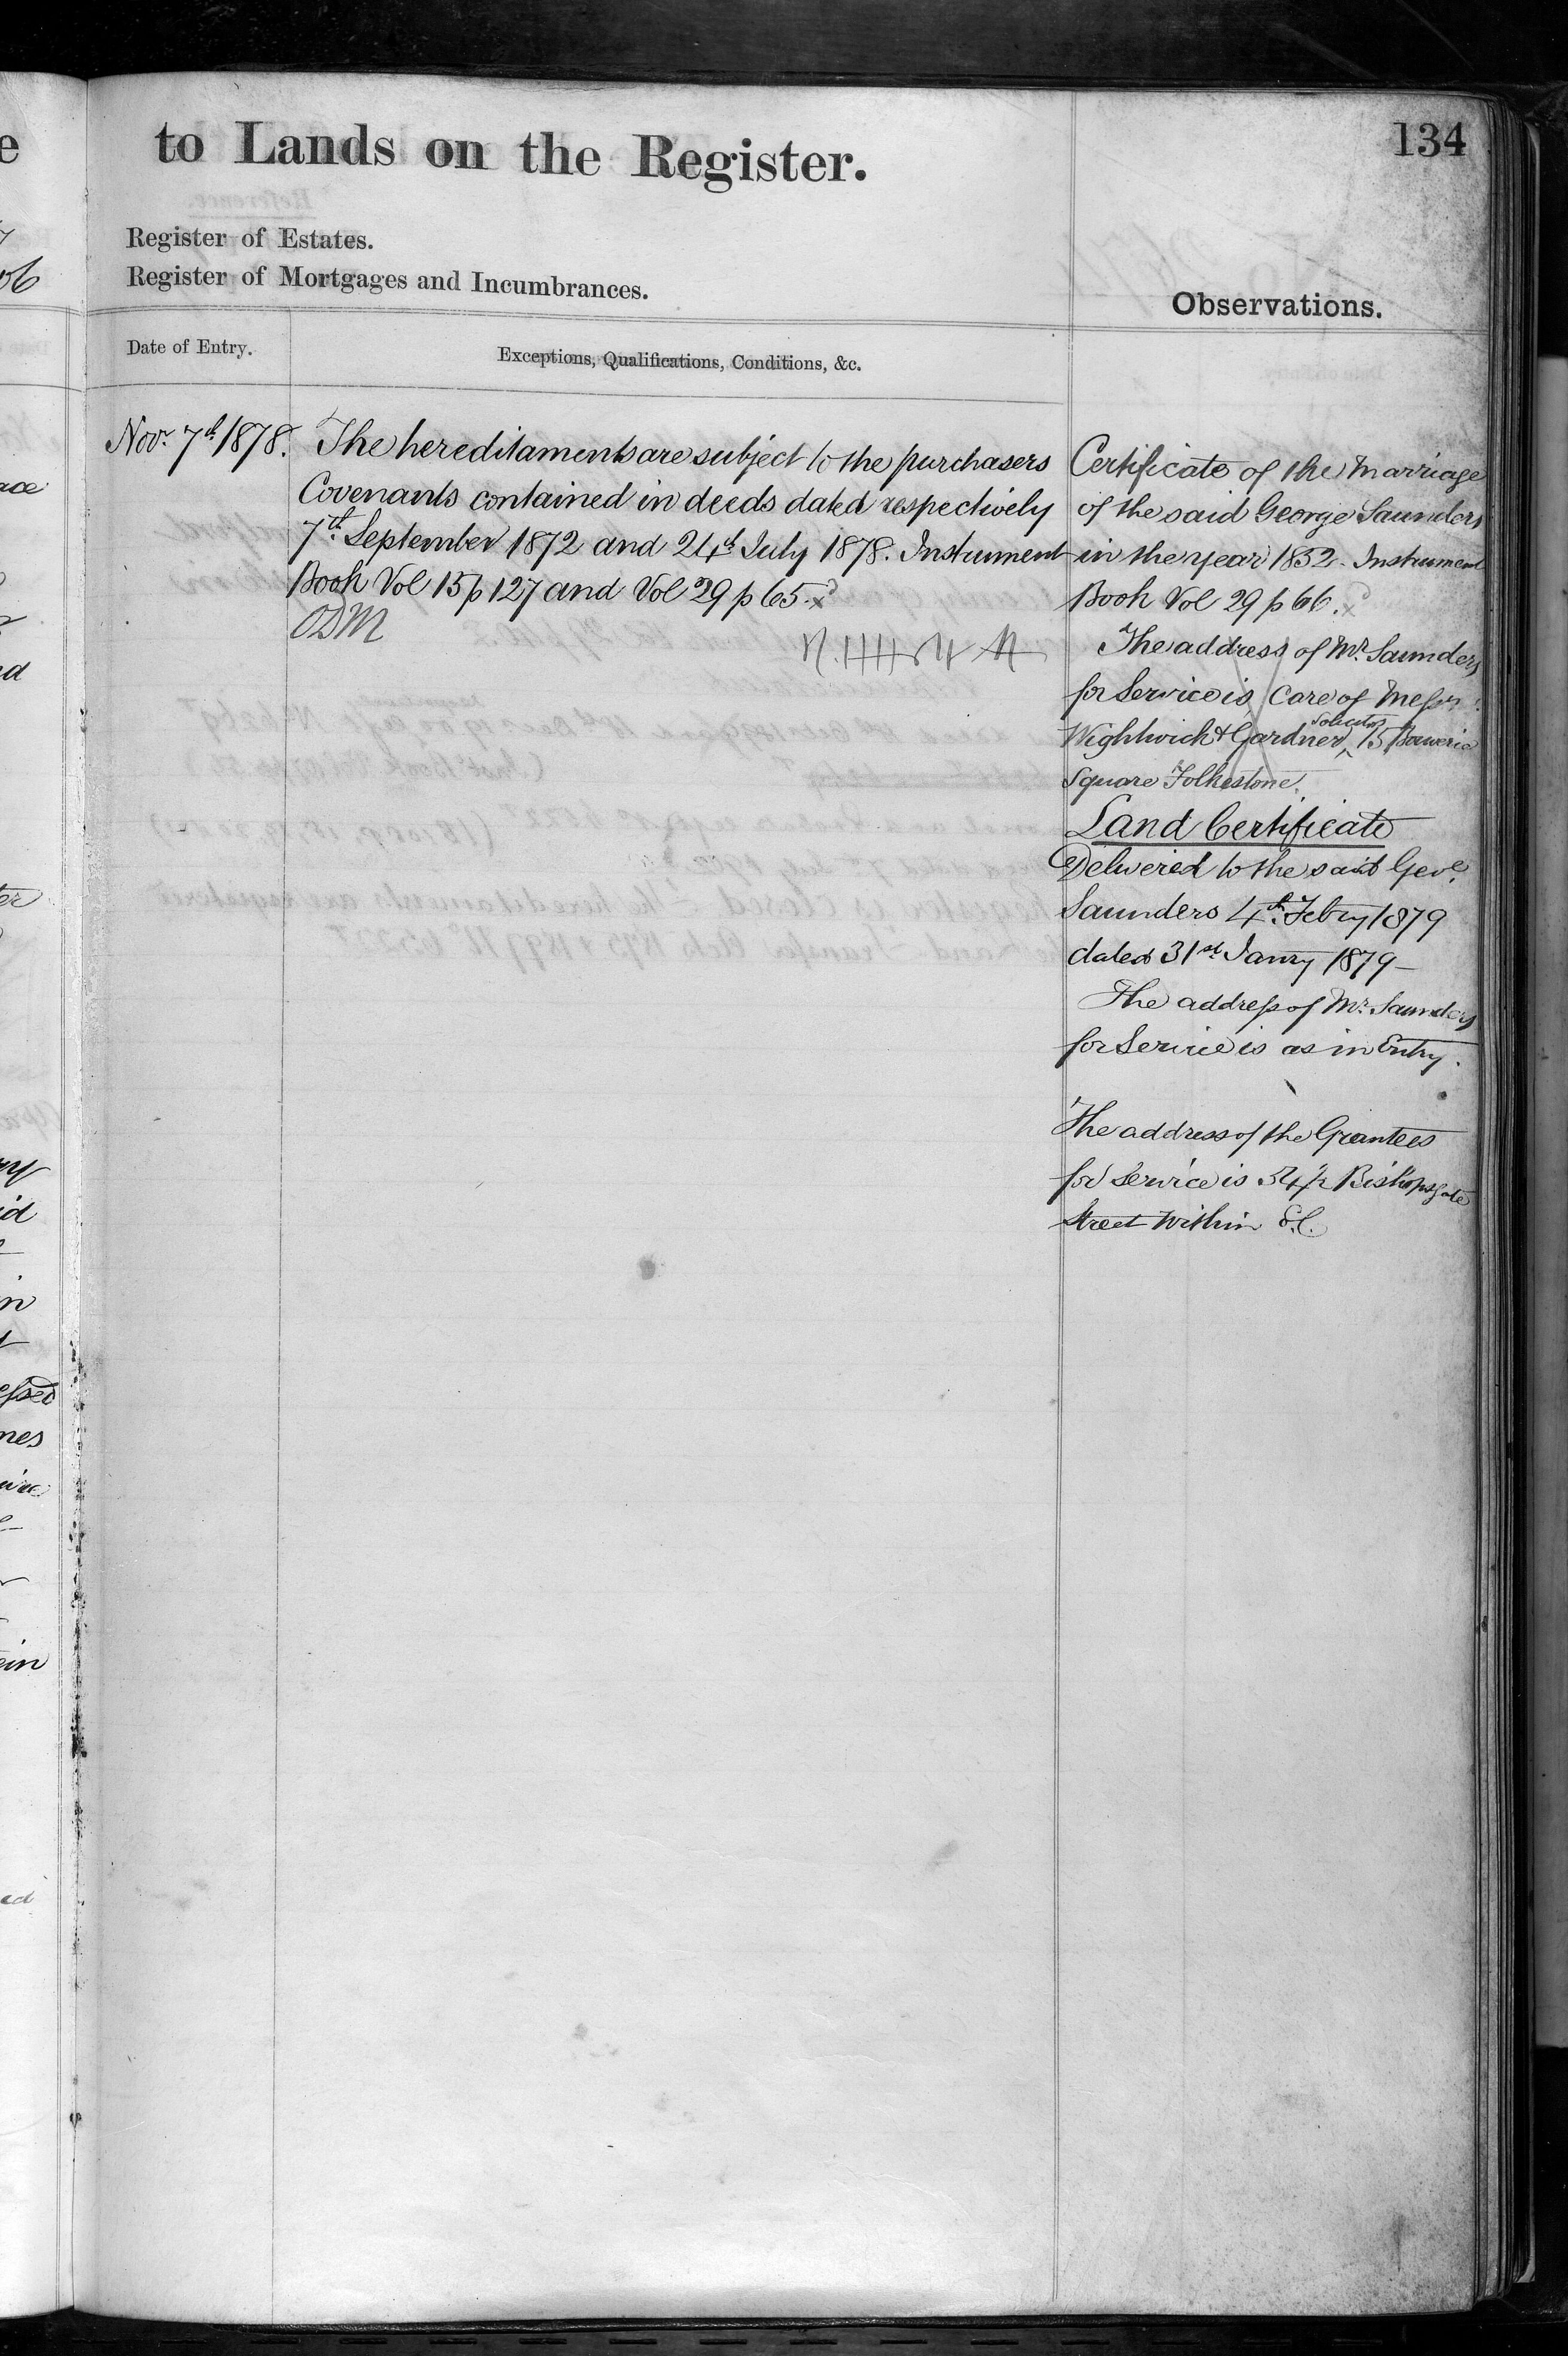 to Lands on the Register.
134
Register of Estates.
Register of Mortgages and Incumbrances.
Observations.
Date of Entry.
Exceptions, Qualifications, Conditions, &c.
Novr. 7th 1878.
The hereditaments are subject to the purchasers
Covenants contained in deeds dated respectively
7th. September 1872 and 24th July 1878. Instrument
Book Vol 15 p 127 and Vol 29 p 65.
ODM
Certificate of the Marriage
of the said George Saunders
in the year 1852. Instrument
Book Vol 29 p 66.
The address of Mr. Saunders
for Service is Care of Messrs.
Wightwick & Gardner, Solicitors 15 Bouverie
Square Folkestone.
Land Certificate
Delivered to the said Geo.
Saunders 4th. Febry 1879
dated 31st. Janry 1879 -
The address of Mr. Saunders
for Service is as in Entry.
The address of the Grantees
for Service is Bishopsgate
Street Within E.C.